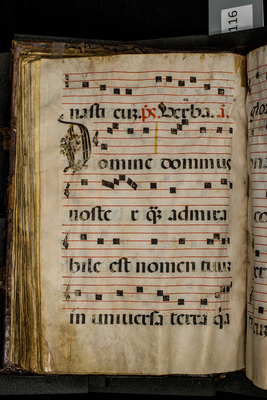 116
nasti cuz. ps. Verba. i.
Domine dominus
noste r q̃ admira
bile est nomen tuuz
in universa terra q̃a